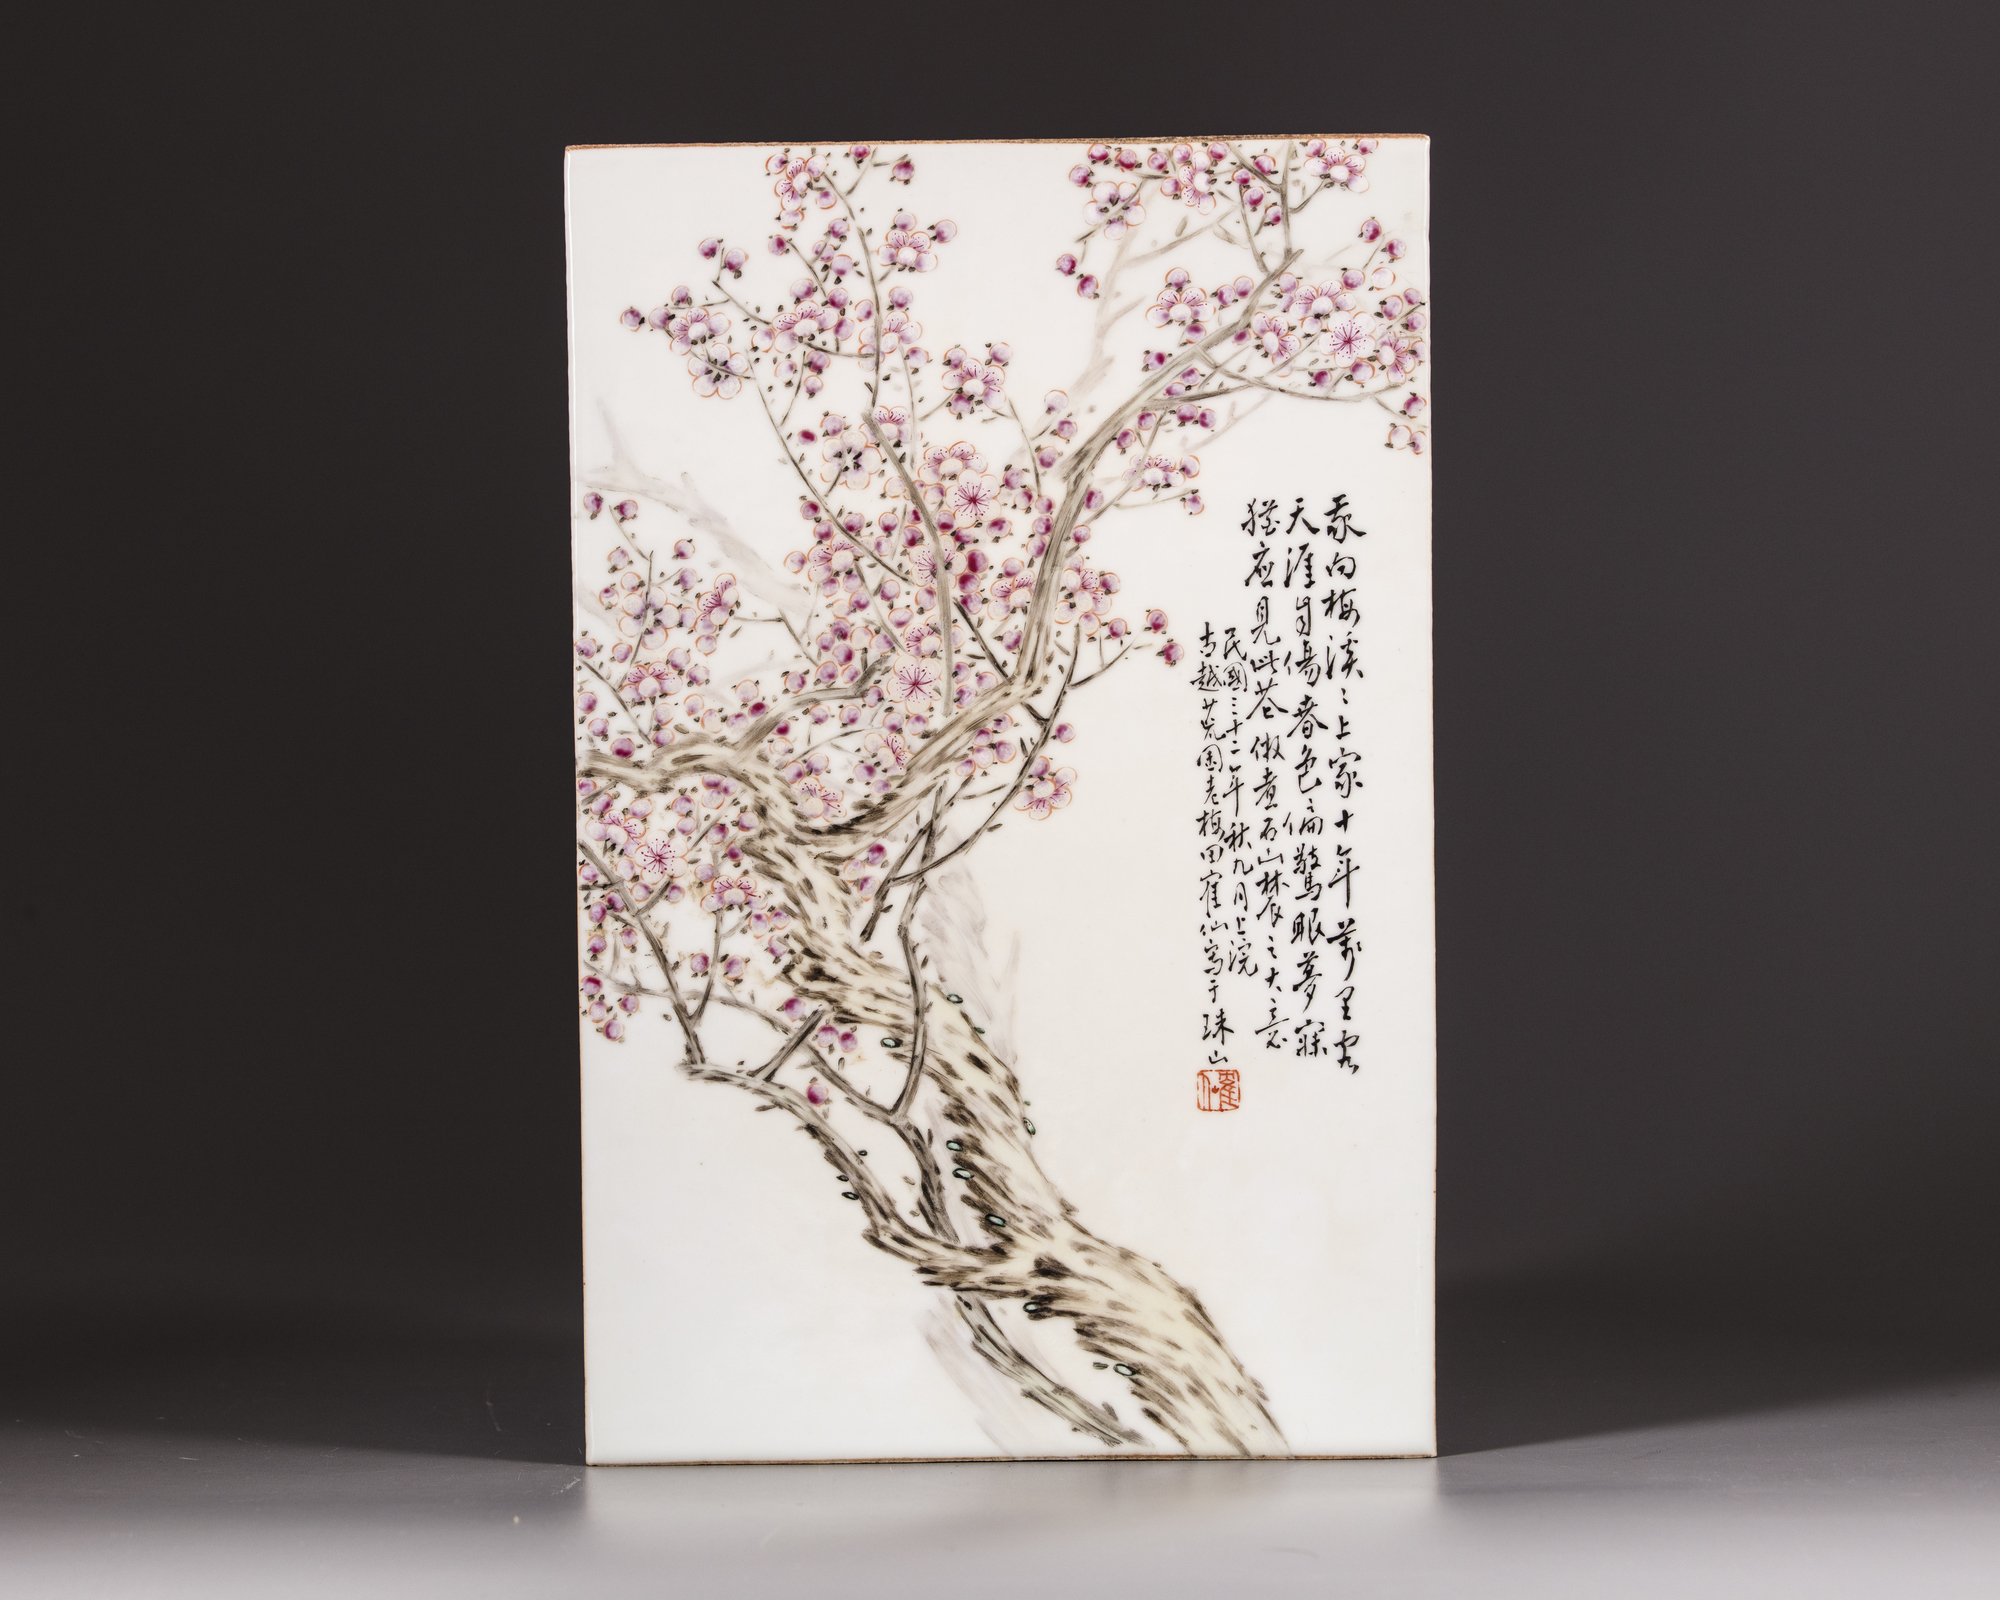 家向梅溪溪上家十年萬里客
天涯自傷春色偏驚眼夢寐
猶應見此花倣煮石山農之大意
民國三十二年秋九月上浣
古越荒園老梅田寉仙寫于珠山
寉仙